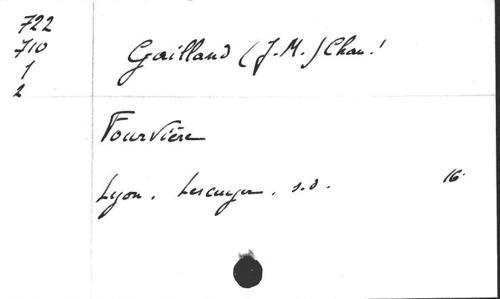 722
710
1
2
Gailland (J.-M.) Chan.!
Fourvière
Lyon. Lescuyer. s.d. 16.